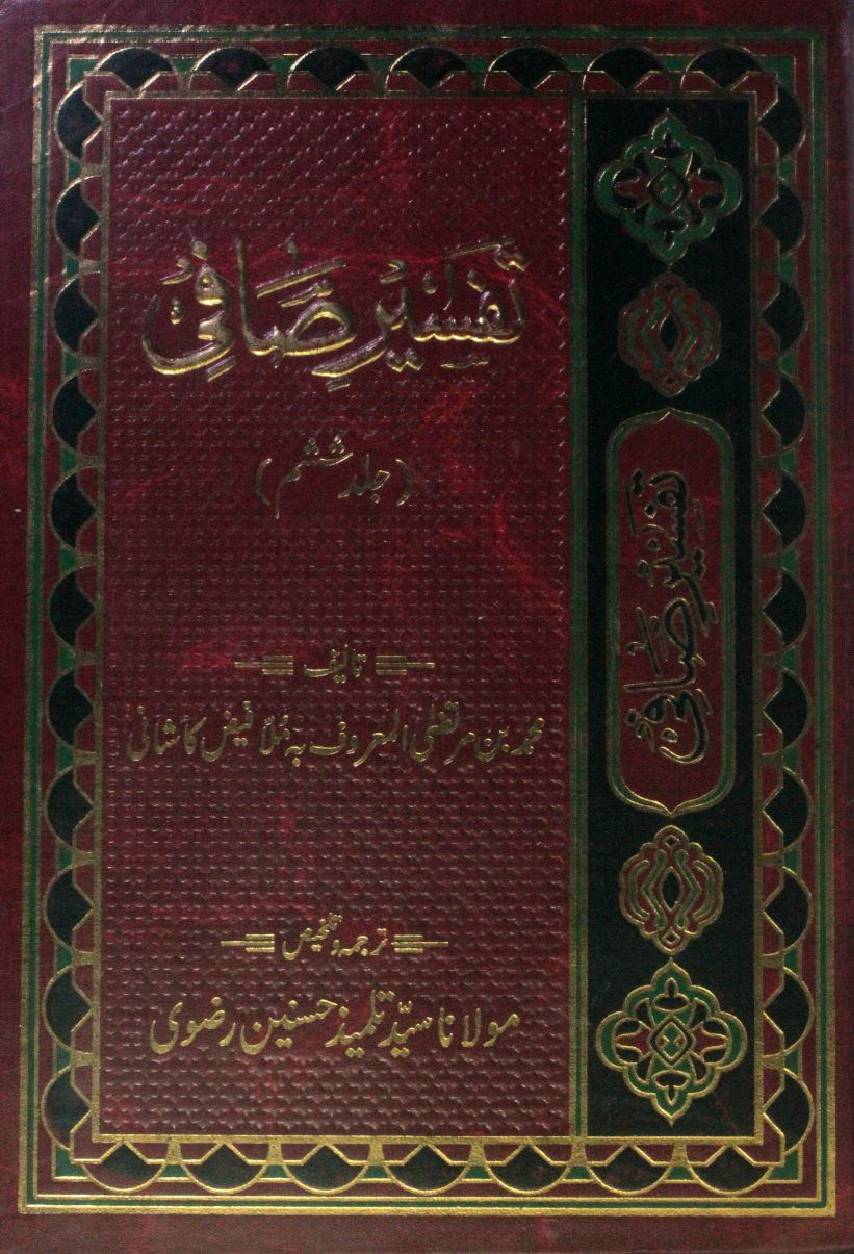 تفسیر صافی
(جلد ششم)
تالیف
محمد بن مرتضٰی المعروف بہ مُلّا فیض کاشانی
ترجمہ و تلخیص
مولانا سیّد تلمیذ حسنین رضوی
تفسیر صافی